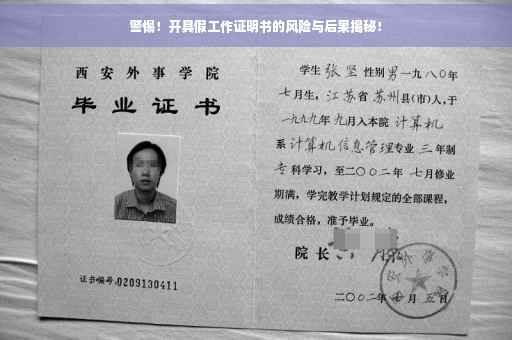 警惕！开具假工作证明书的风险与后果揭秘！
西安外事学院
毕业证书
证书编号:0209130411
学生 张坚 性别 男 一九八〇年
七月生，江苏省 苏州县(市)人，于
一九九九年 九月入本院 计算机
系 计算机信息管理专业 三 年制
专科学习，至二〇〇二年 七月修业
期满，学完教学计划规定的全部课程，
成绩合格，准予毕业。
院长
二〇〇二年 月 五日